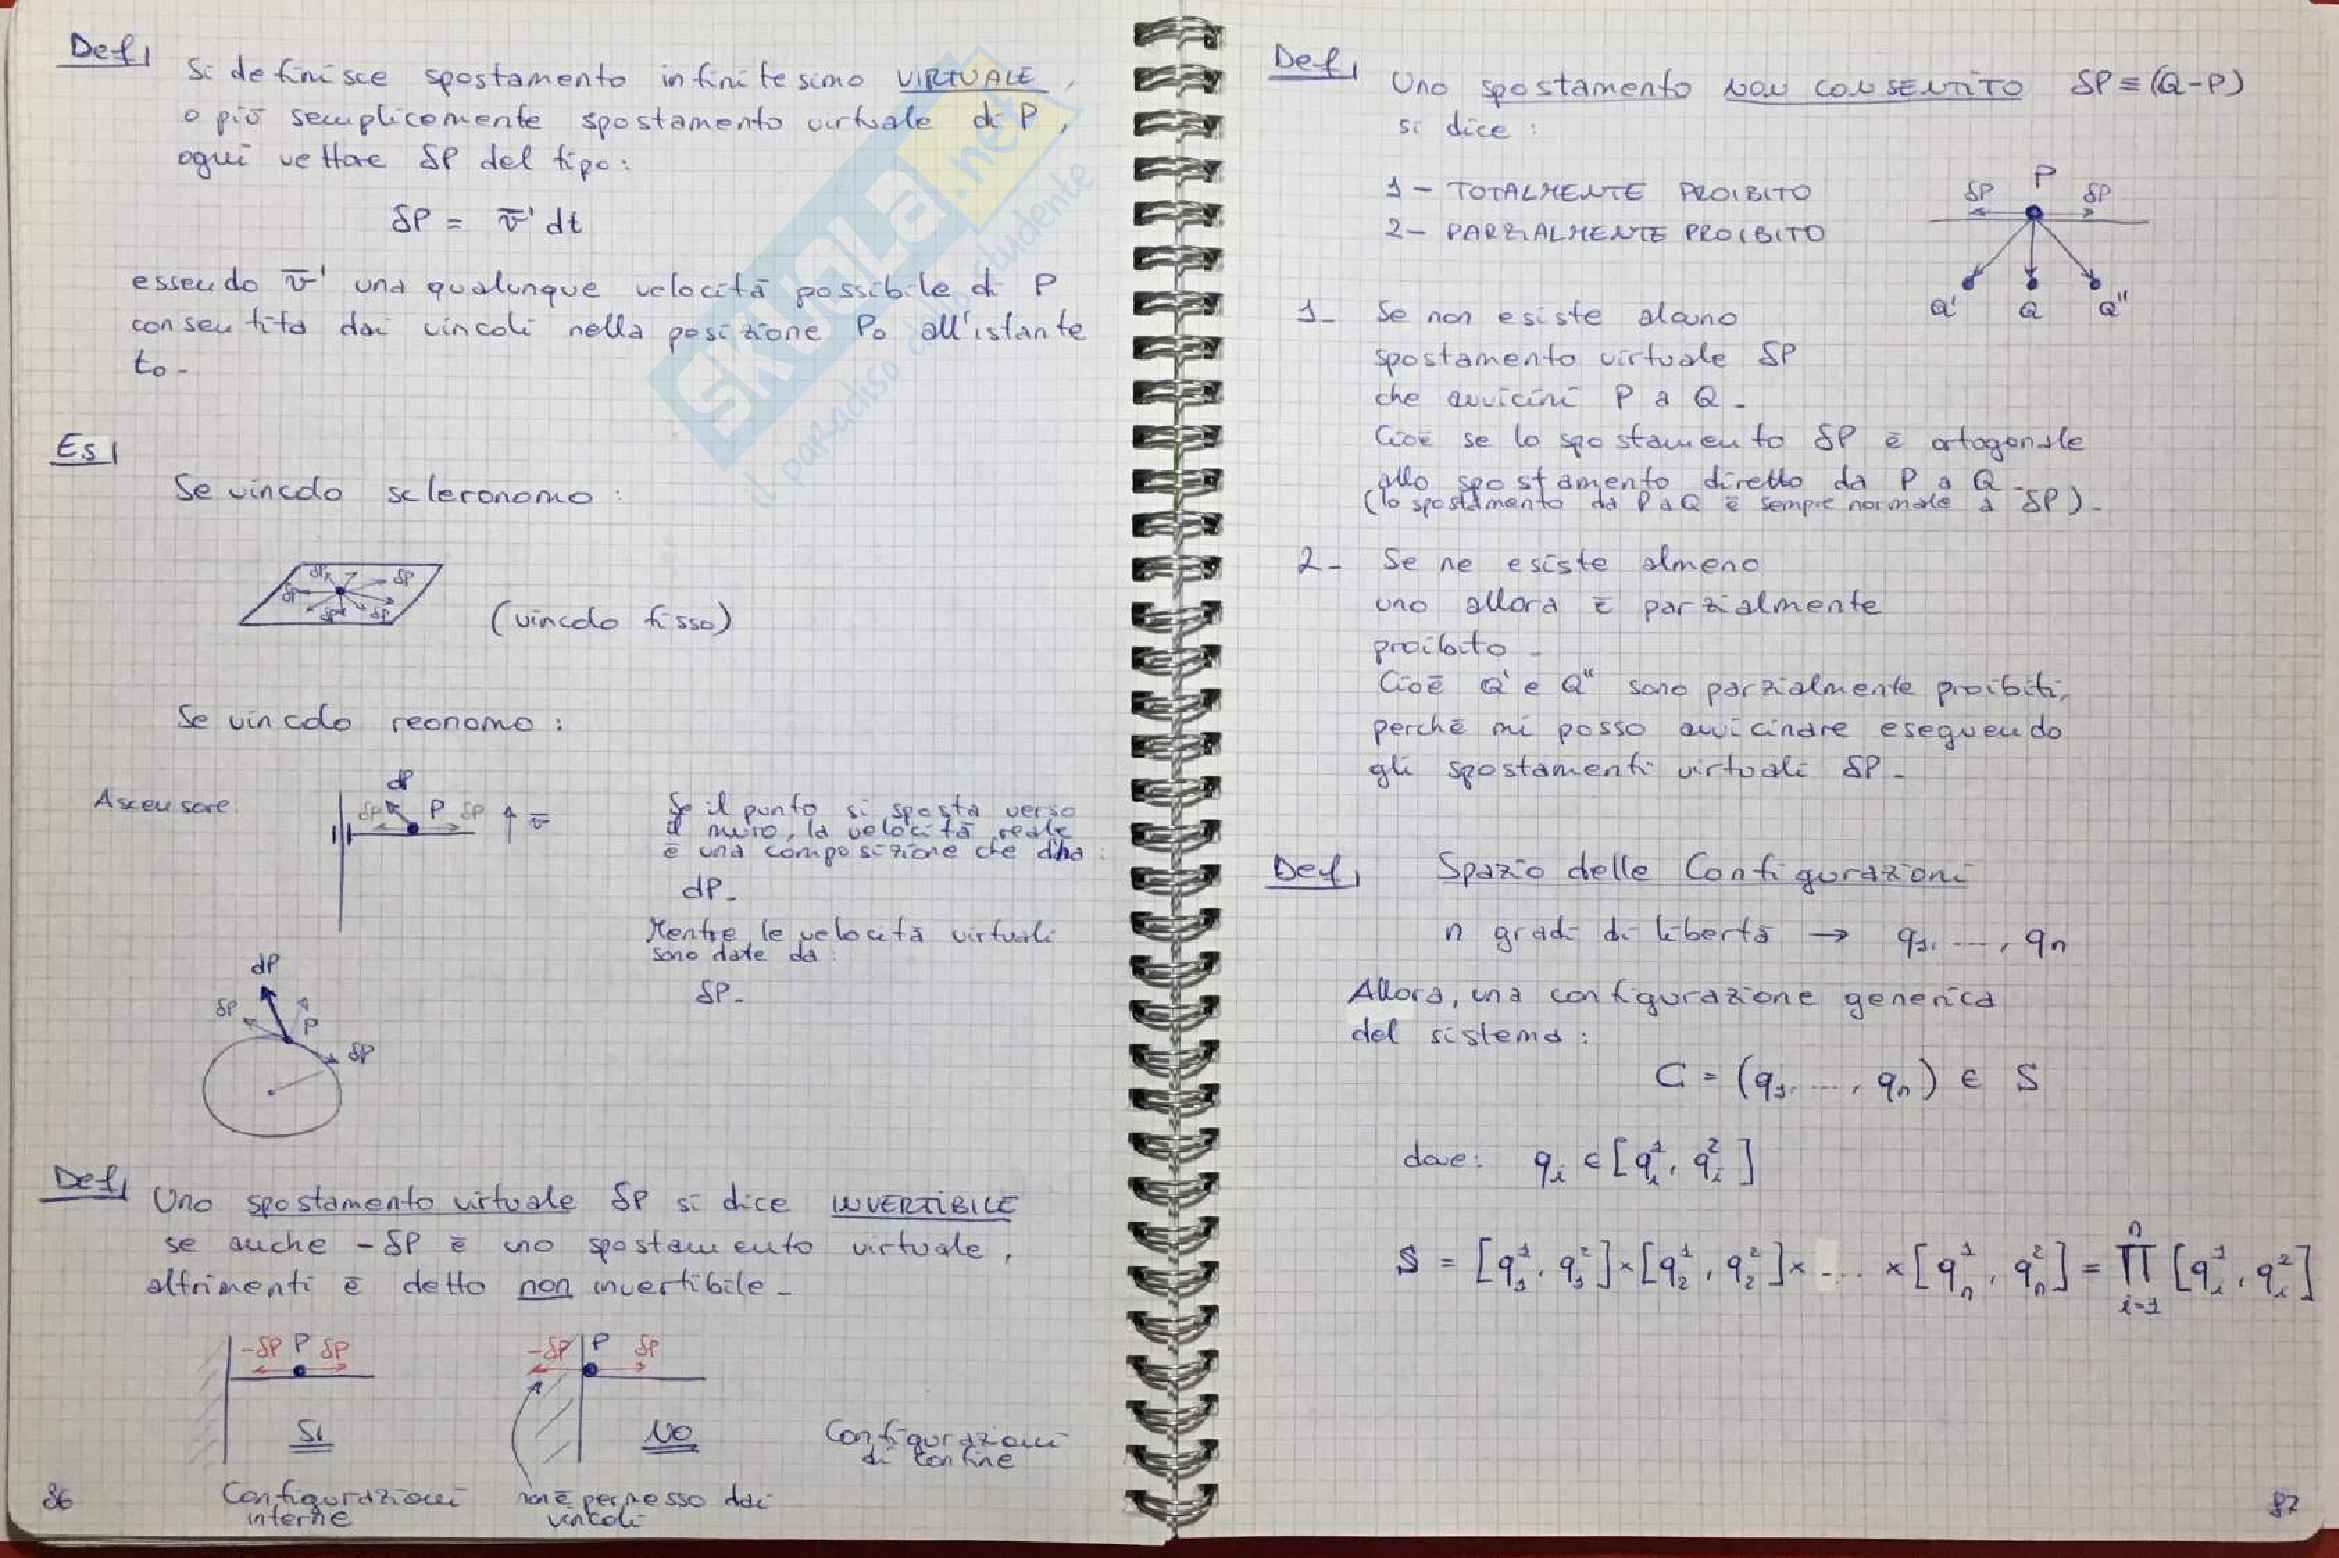 Def
Si definisce spostamento infinitesimo VIRTUALE,
o più semplicemente spostamento virtuale di P,
ogni vettore δP del tipo:
δP = v̄' dt
essendo v̄' una qualunque velocità possibile di P
consentita dai vincoli nella posizione P₀ all'istante
t₀-
Es
Se vincolo scleronomo:
δP δP
δP δP δP
(vincolo fisso)
Se vincolo reonomo:
Ascensore
dP
δP P δP v̄
Se il punto si sposta verso
il muro, la velocità reale
è una composizione che dà:
dP-
Mentre le velocità virtuali
sono date da:
δP-
dP
δP
P
δP
Def
Uno spostamento virtuale δP si dice INVERTIBILE
se anche -δP è uno spostamento virtuale,
altrimenti è detto non invertibile-
-δP P δP
-δP P δP
SI
NO
Configurazioni
di confine
Configurazioni
interne
non è permesso dai
vincoli
86
Def
Uno spostamento NON CONSENTITO δP ≡ (Q-P)
si dice:
1- TOTALMENTE PROIBITO
2- PARZIALMENTE PROIBITO
P
δP δP
Q' Q Q"
1- Se non esiste alcuno
spostamento virtuale δP
che avvicini P a Q-
Cioè se lo spostamento δP è ortogonale
allo spostamento diretto da P a Q-
(lo spostamento da P a Q è sempre normale a δP)-
2- Se ne esiste almeno
uno allora è parzialmente
proibito-
Cioè Q' e Q" sono parzialmente proibiti,
perché mi posso avvicinare eseguendo
gli spostamenti virtuali δP-
Def
Spazio delle Configurazioni
n gradi di libertà → q₁, ..., qₙ
Allora, una configurazione generica
del sistema:
C = (q₁, ..., qₙ) ∈ S
dove: qᵢ ∈ [qᵢ¹, qᵢ²]
S = [q₁¹, q₁²]×[q₂¹, q₂²]× .... ×[qₙ¹, qₙ²] = ∏ⁿᵢ₌₁ [qᵢ¹, qᵢ²]
87
SKUOLA.net
il paradiso dello studente